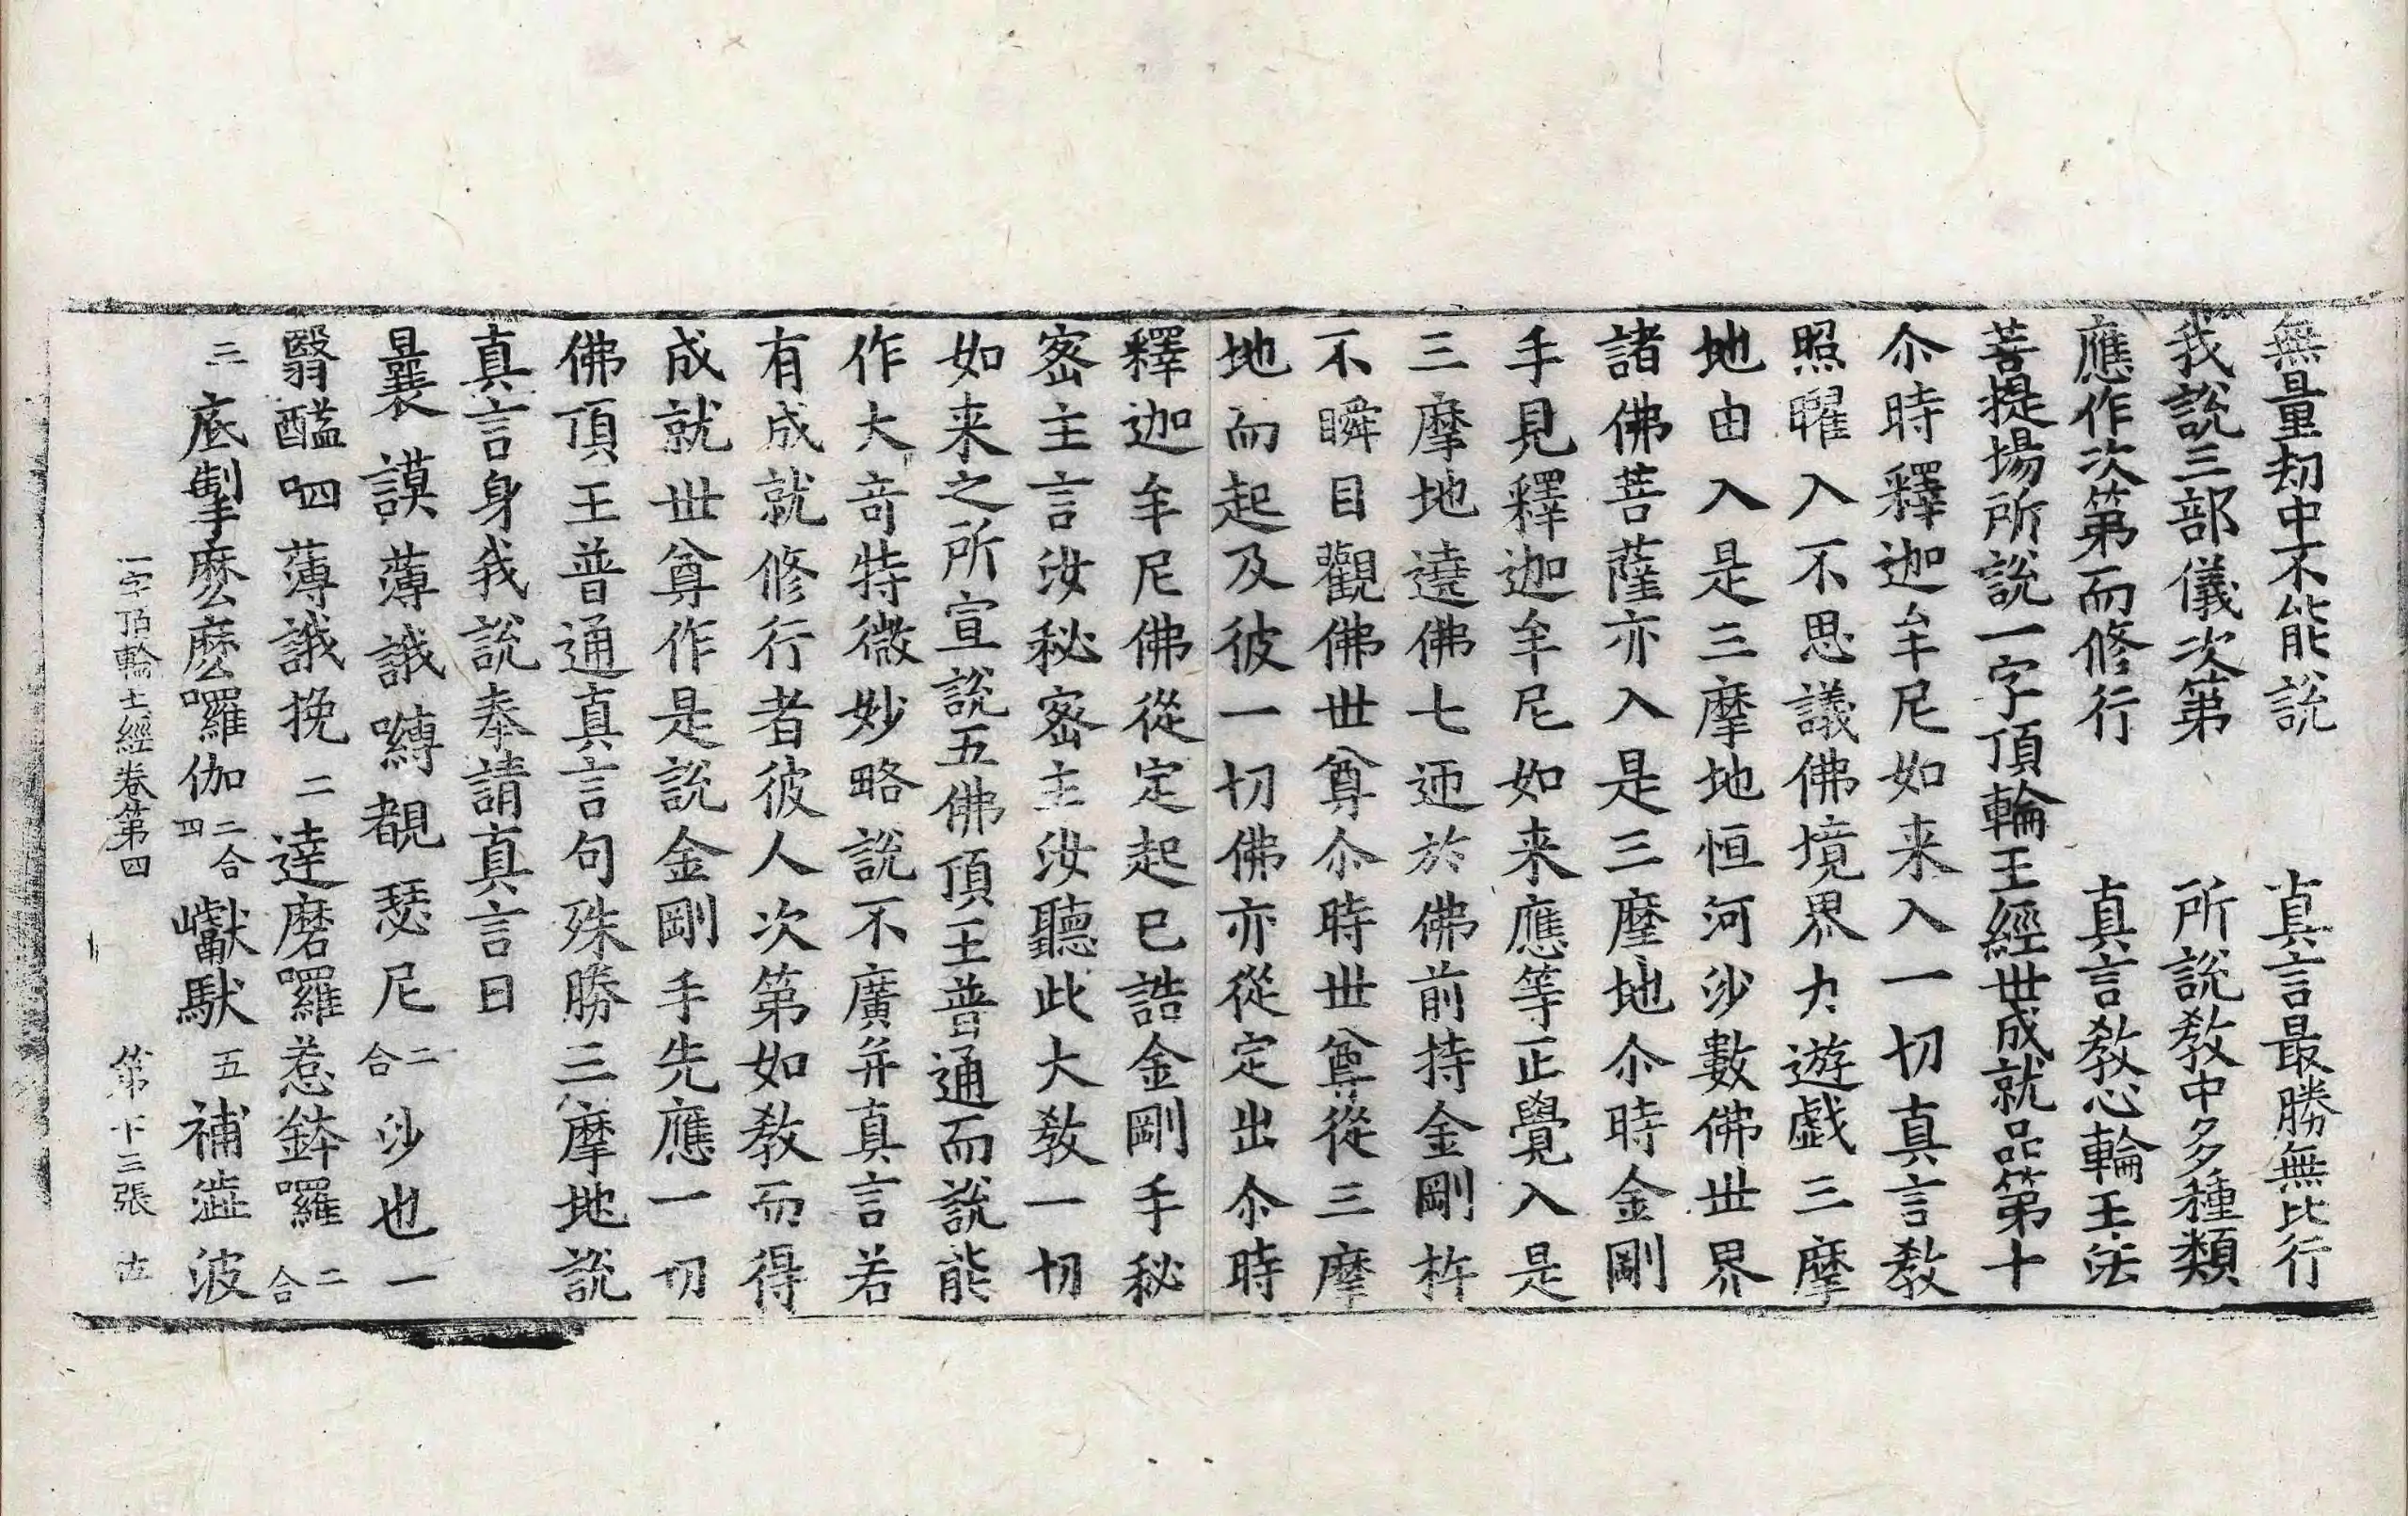 無量劫中不能說　真言最勝無比行
我說三部儀次第　所說教中多種類
應作次第而修行　真言教心輪王法
菩提場所說一字頂輪王經世成就品第十
尒時釋迦牟尼如来入一切真言教
照曜入不思議佛境界力遊戱三摩
地由入是三摩地恒河沙數佛世界
諸佛菩薩亦入是三摩地尒時金剛
手見釋迦牟尼如来應等正覺入是
三摩地遶佛七迊於佛前持金剛杵
不瞬目觀佛世尊尒時世尊從三摩
地而起及彼一切佛亦從定出尒時
釋迦牟尼佛從定起已誥金剛手秘
密主言汝秘密主汝聽此大教一切
如来之所宣說五佛頂王普通而說能
作大竒特微妙略說不廣并真言若
有成就修行者彼人次第如教而得
成就世尊作是說金剛手先應一切
佛頂王普通真言句殊勝三摩地說
真言身我說奉請真言曰
曩謨薄誐嚩覩瑟尼二合沙也一
翳醯呬薄誐挽二達磨囉惹鉢囉二合
三底掣麽麽囉伽二合四巘馱五補澁波
一字頂輪王經卷第四　第十三張